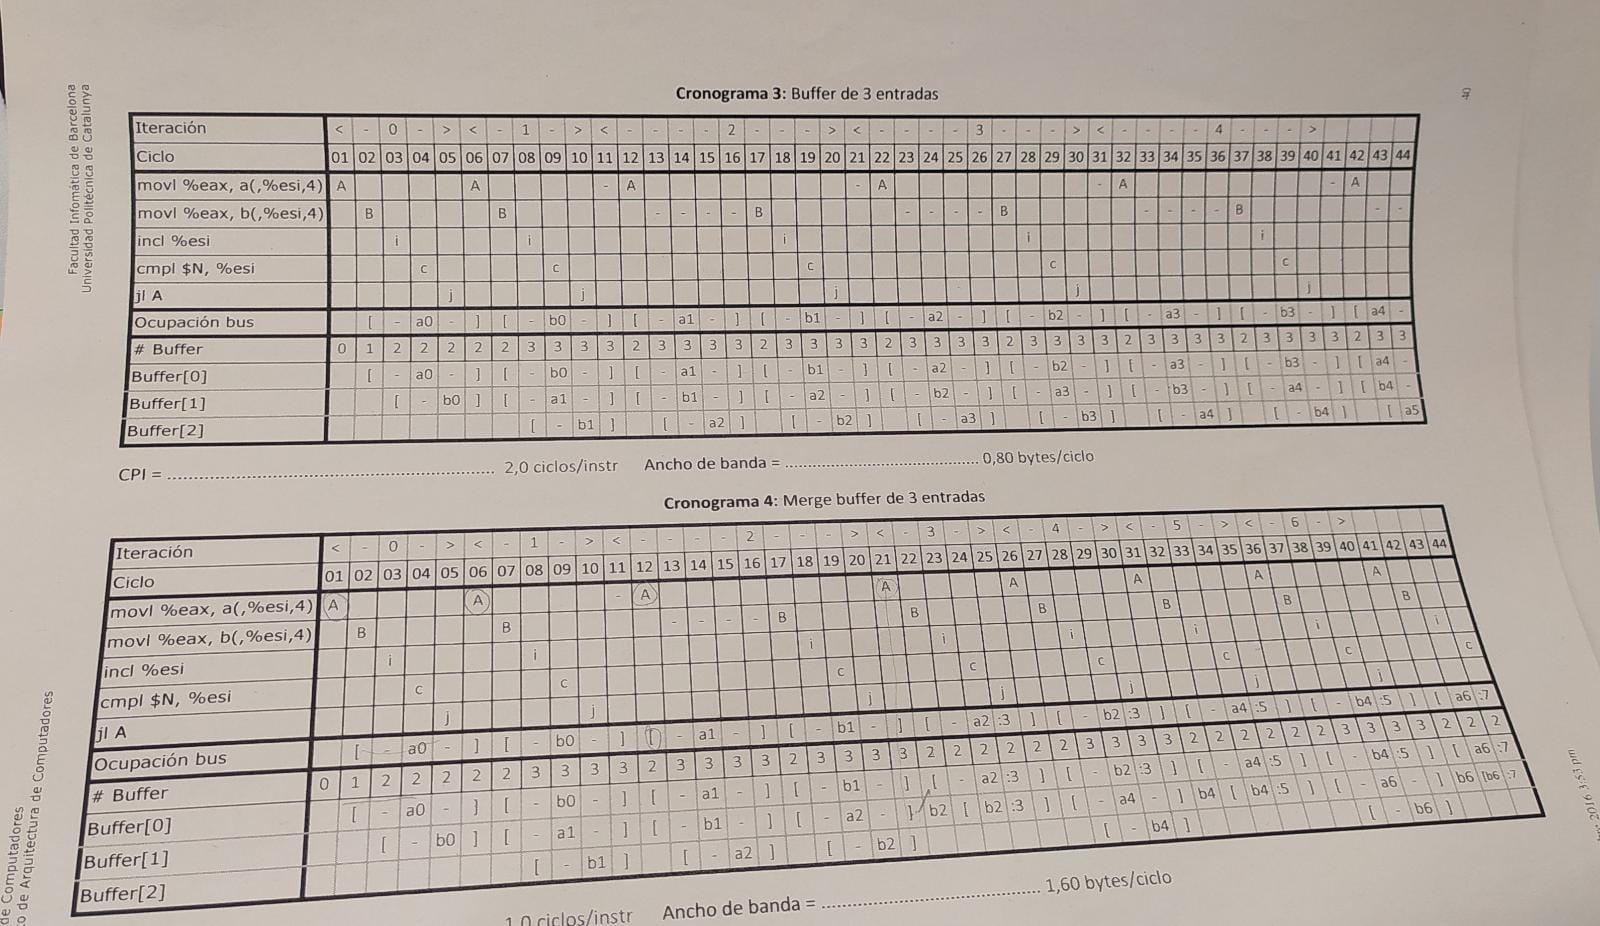 Facultad Infomática de Barcelona
Universidad Politécnica de Catalunya
Cronograma 3: Buffer de 3 entradas
Iteración < - 0 - > < - 1 - > < - - - - 2 - - - > < - - - - 3 - - - > < - - - - 4 - - - >
Ciclo 01 02 03 04 05 06 07 08 09 10 11 12 13 14 15 16 17 18 19 20 21 22 23 24 25 26 27 28 29 30 31 32 33 34 35 36 37 38 39 40 41 42 43 44
movl %eax, a(,%esi,4) A A - A - A - A - A
movl %eax, b(,%esi,4) B B - - - - B - - - - B - - - - B - -
incl %esi i i i i i
cmpl $N, %esi c c c c c
jl A j j j j j
Ocupación bus [ - a0 - ] [ - b0 - ] [ - a1 - ] [ - b1 - ] [ - a2 - ] [ - b2 - ] [ - a3 - ] [ - b3 - ] [ a4 -
# Buffer 0 1 2 2 2 2 2 3 3 3 3 2 3 3 3 3 2 3 3 3 3 2 3 3 3 3 2 3 3 3 3 2 3 3 3 3 2 3 3 3 3 2 3 3
Buffer[0] [ - a0 - ] [ - b0 - ] [ - a1 - ] [ - b1 - ] [ - a2 - ] [ - b2 - ] [ - a3 - ] [ - b3 - ] [ a4 -
Buffer[1] [ - b0 ] [ - a1 - ] [ - b1 - ] [ - a2 - ] [ - b2 - ] [ - a3 - ] [ - b3 - ] [ - a4 - ] [ b4 -
Buffer[2] [ - b1 ] [ - a2 ] [ - b2 ] [ - a3 ] [ - b3 ] [ - a4 ] [ - b4 ] [ a5
CPI = 2,0 ciclos/instr Ancho de banda = 0,80 bytes/ciclo
Cronograma 4: Merge buffer de 3 entradas
Iteración < - 0 - > < - 1 - > < - - - - 2 - - - > < - 3 - > < - 4 - > < - 5 - > < - 6 - >
Ciclo 01 02 03 04 05 06 07 08 09 10 11 12 13 14 15 16 17 18 19 20 21 22 23 24 25 26 27 28 29 30 31 32 33 34 35 36 37 38 39 40 41 42 43 44
movl %eax, a(,%esi,4) A A - A A A A A A
movl %eax, b(,%esi,4) B B - - - - B B B B B B
incl %esi i i i i i i i i
cmpl $N, %esi c c c c c c c c
jl A j j j j j j j
Ocupación bus [ - a0 - ] [ - b0 - ] [ - a1 ] [ - b1 - ] [ - a2 :3 ] [ - b2 :3 ] [ - a4 :5 ] [ - b4 :5 ] [ a6 :7
# Buffer 0 1 2 2 2 2 2 3 3 3 3 2 3 3 3 3 2 3 3 3 3 2 2 2 2 2 2 3 3 3 3 2 2 2 2 2 2 3 3 3 3 2 2 2
Buffer[0] [ - a0 - ] [ - b0 - ] [ - a1 - ] [ - b1 - ] [ - a2 :3 ] [ - b2 :3 ] [ - a4 :5 ] [ - b4 :5 ] [ a6 :7
Buffer[1] [ - b0 ] [ - a1 - ] [ - b1 - ] [ - a2 - ] b2 [ b2 :3 ] [ - a4 - ] b4 [ b4 :5 ] [ - a6 - ] b6 [b6 :7
Buffer[2] [ - b1 ] [ - a2 ] [ - b2 ] [ - b4 ] [ - b6 ]
1,0 ciclos/instr Ancho de banda = 1,60 bytes/ciclo
de Computadores
de Arquitectura de Computadores
2016 3:51 pm